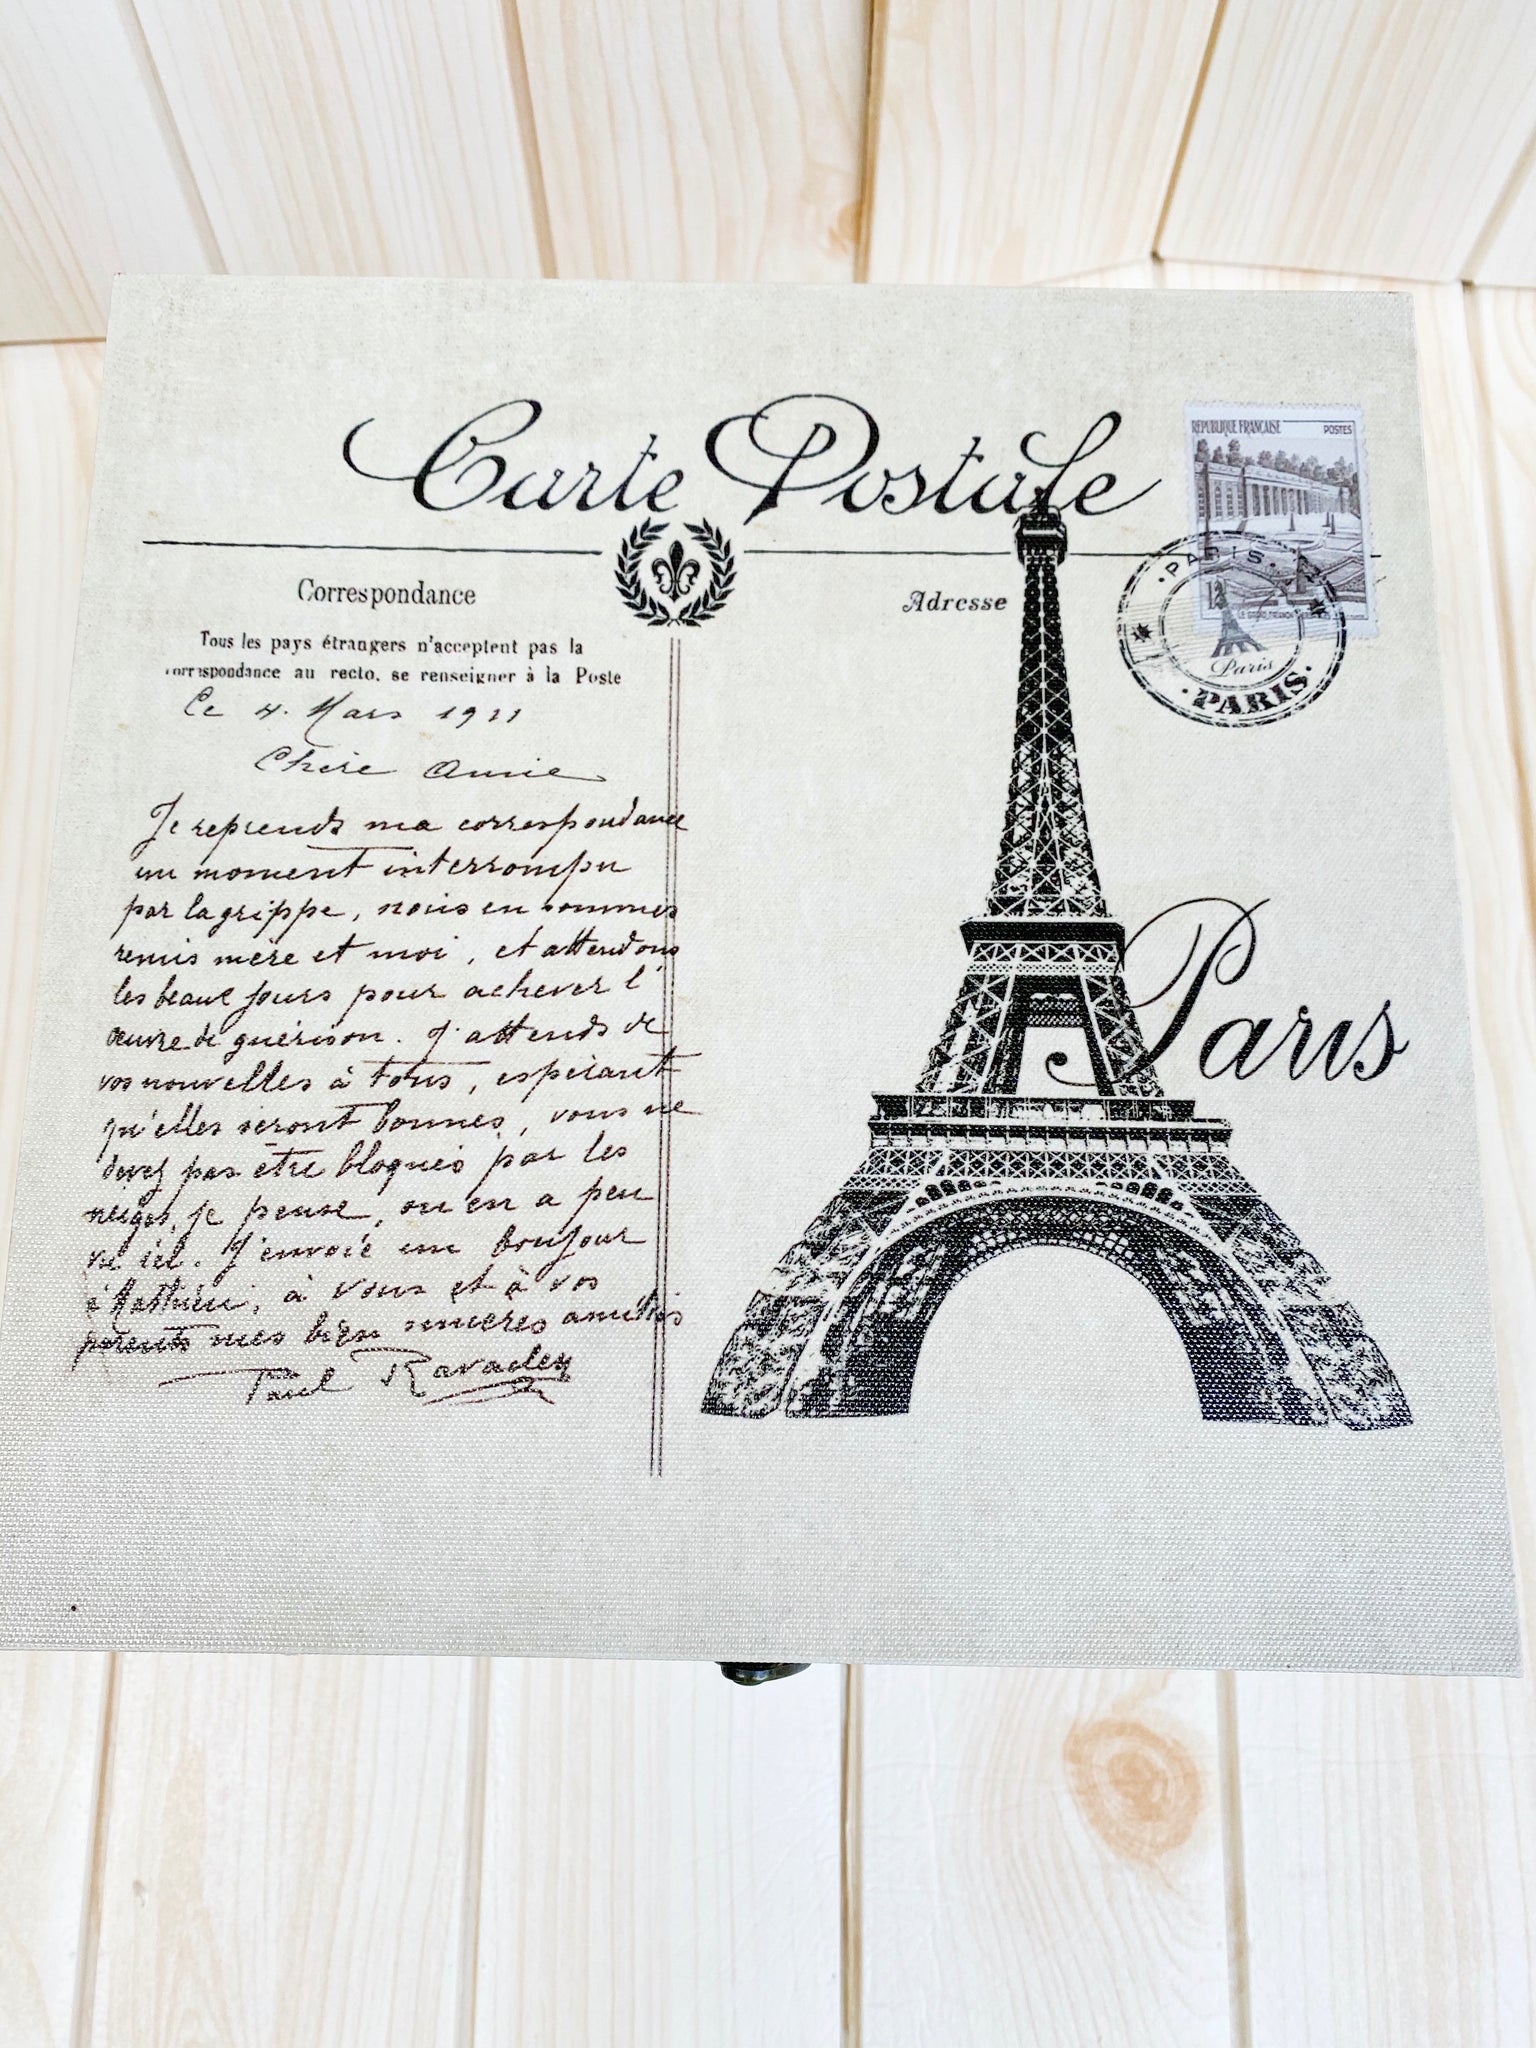 Carte Postale
REPUBLIQUE FRANÇAISE POSTES
12
PARIS
Paris
PARIS
Correspondance
Adresse
Tous les pays étrangers n'acceptent pas la
correspondance au recto, se renseigner à la Poste
Le 4. Mars 1911
Chère Annie
Je reprends ma correspondance
un moment interrompu
par la grippe, nous en sommes
remis mère et moi, et attendons
les beaux jours pour achever l'
œuvre de guérison. J'attends de
vos nouvelles à tous, espérant
qu'elles seront bonnes, vous ne
devez pas être bloqués par les
neiges, je pense, on en a peu
vu ici. J'envoie un bonjour
à Mathieu, à vous et à vos
parents mes bien sincères amitiés
Paul
Paris